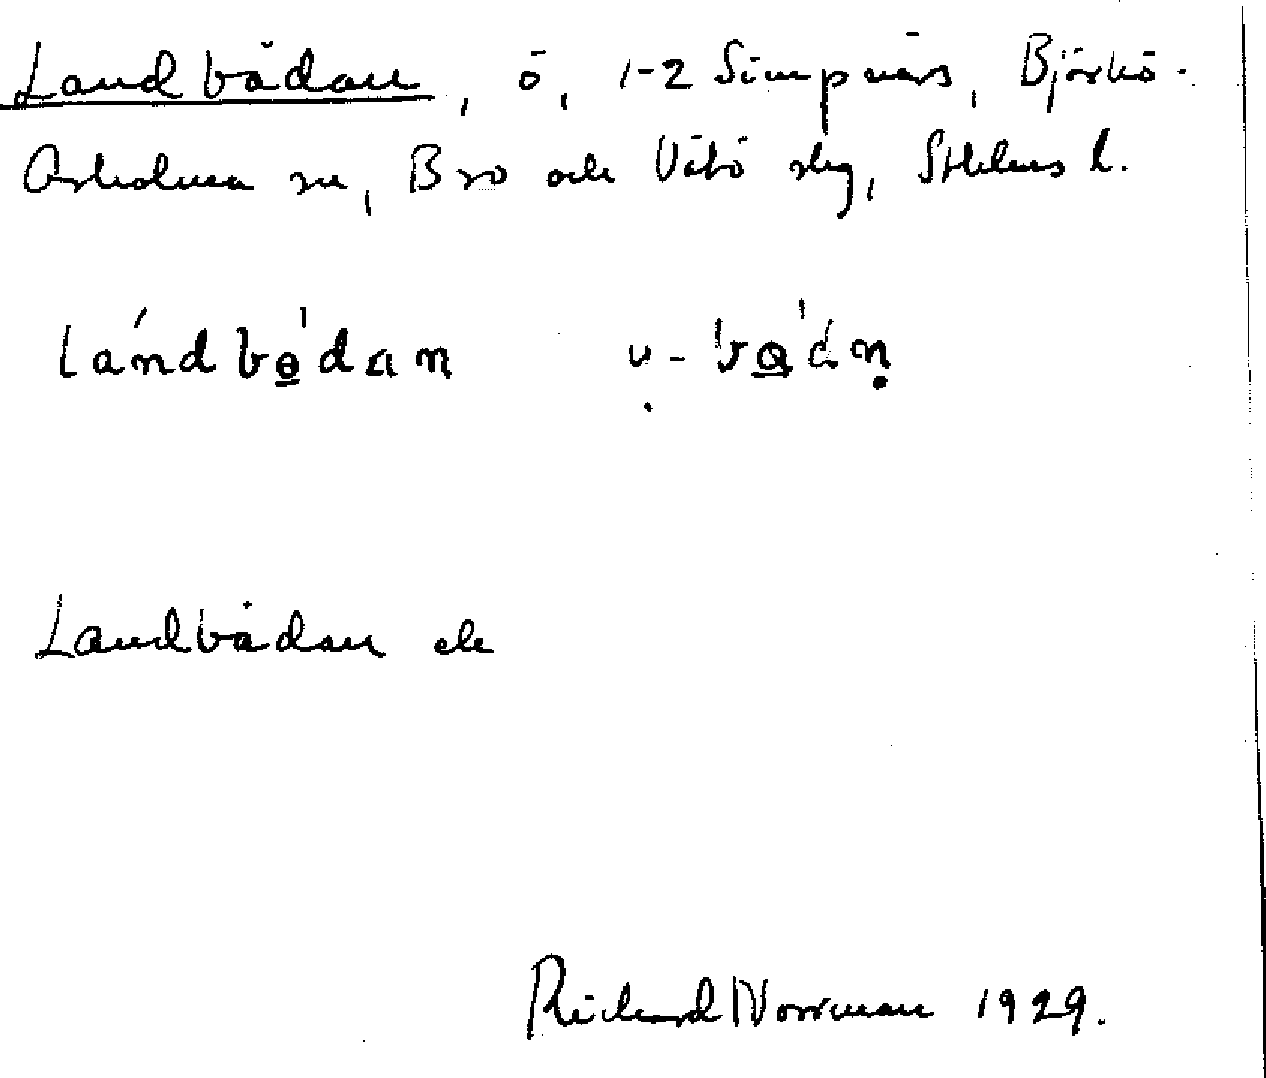 Landbådan, ö, 1-2 Simpnäs, Björkö-
Arholma sn, Bro och Vätö slg, Sthlms l.
lándbo̲'dan
Landbådan ek
Richard Norrman 1929.